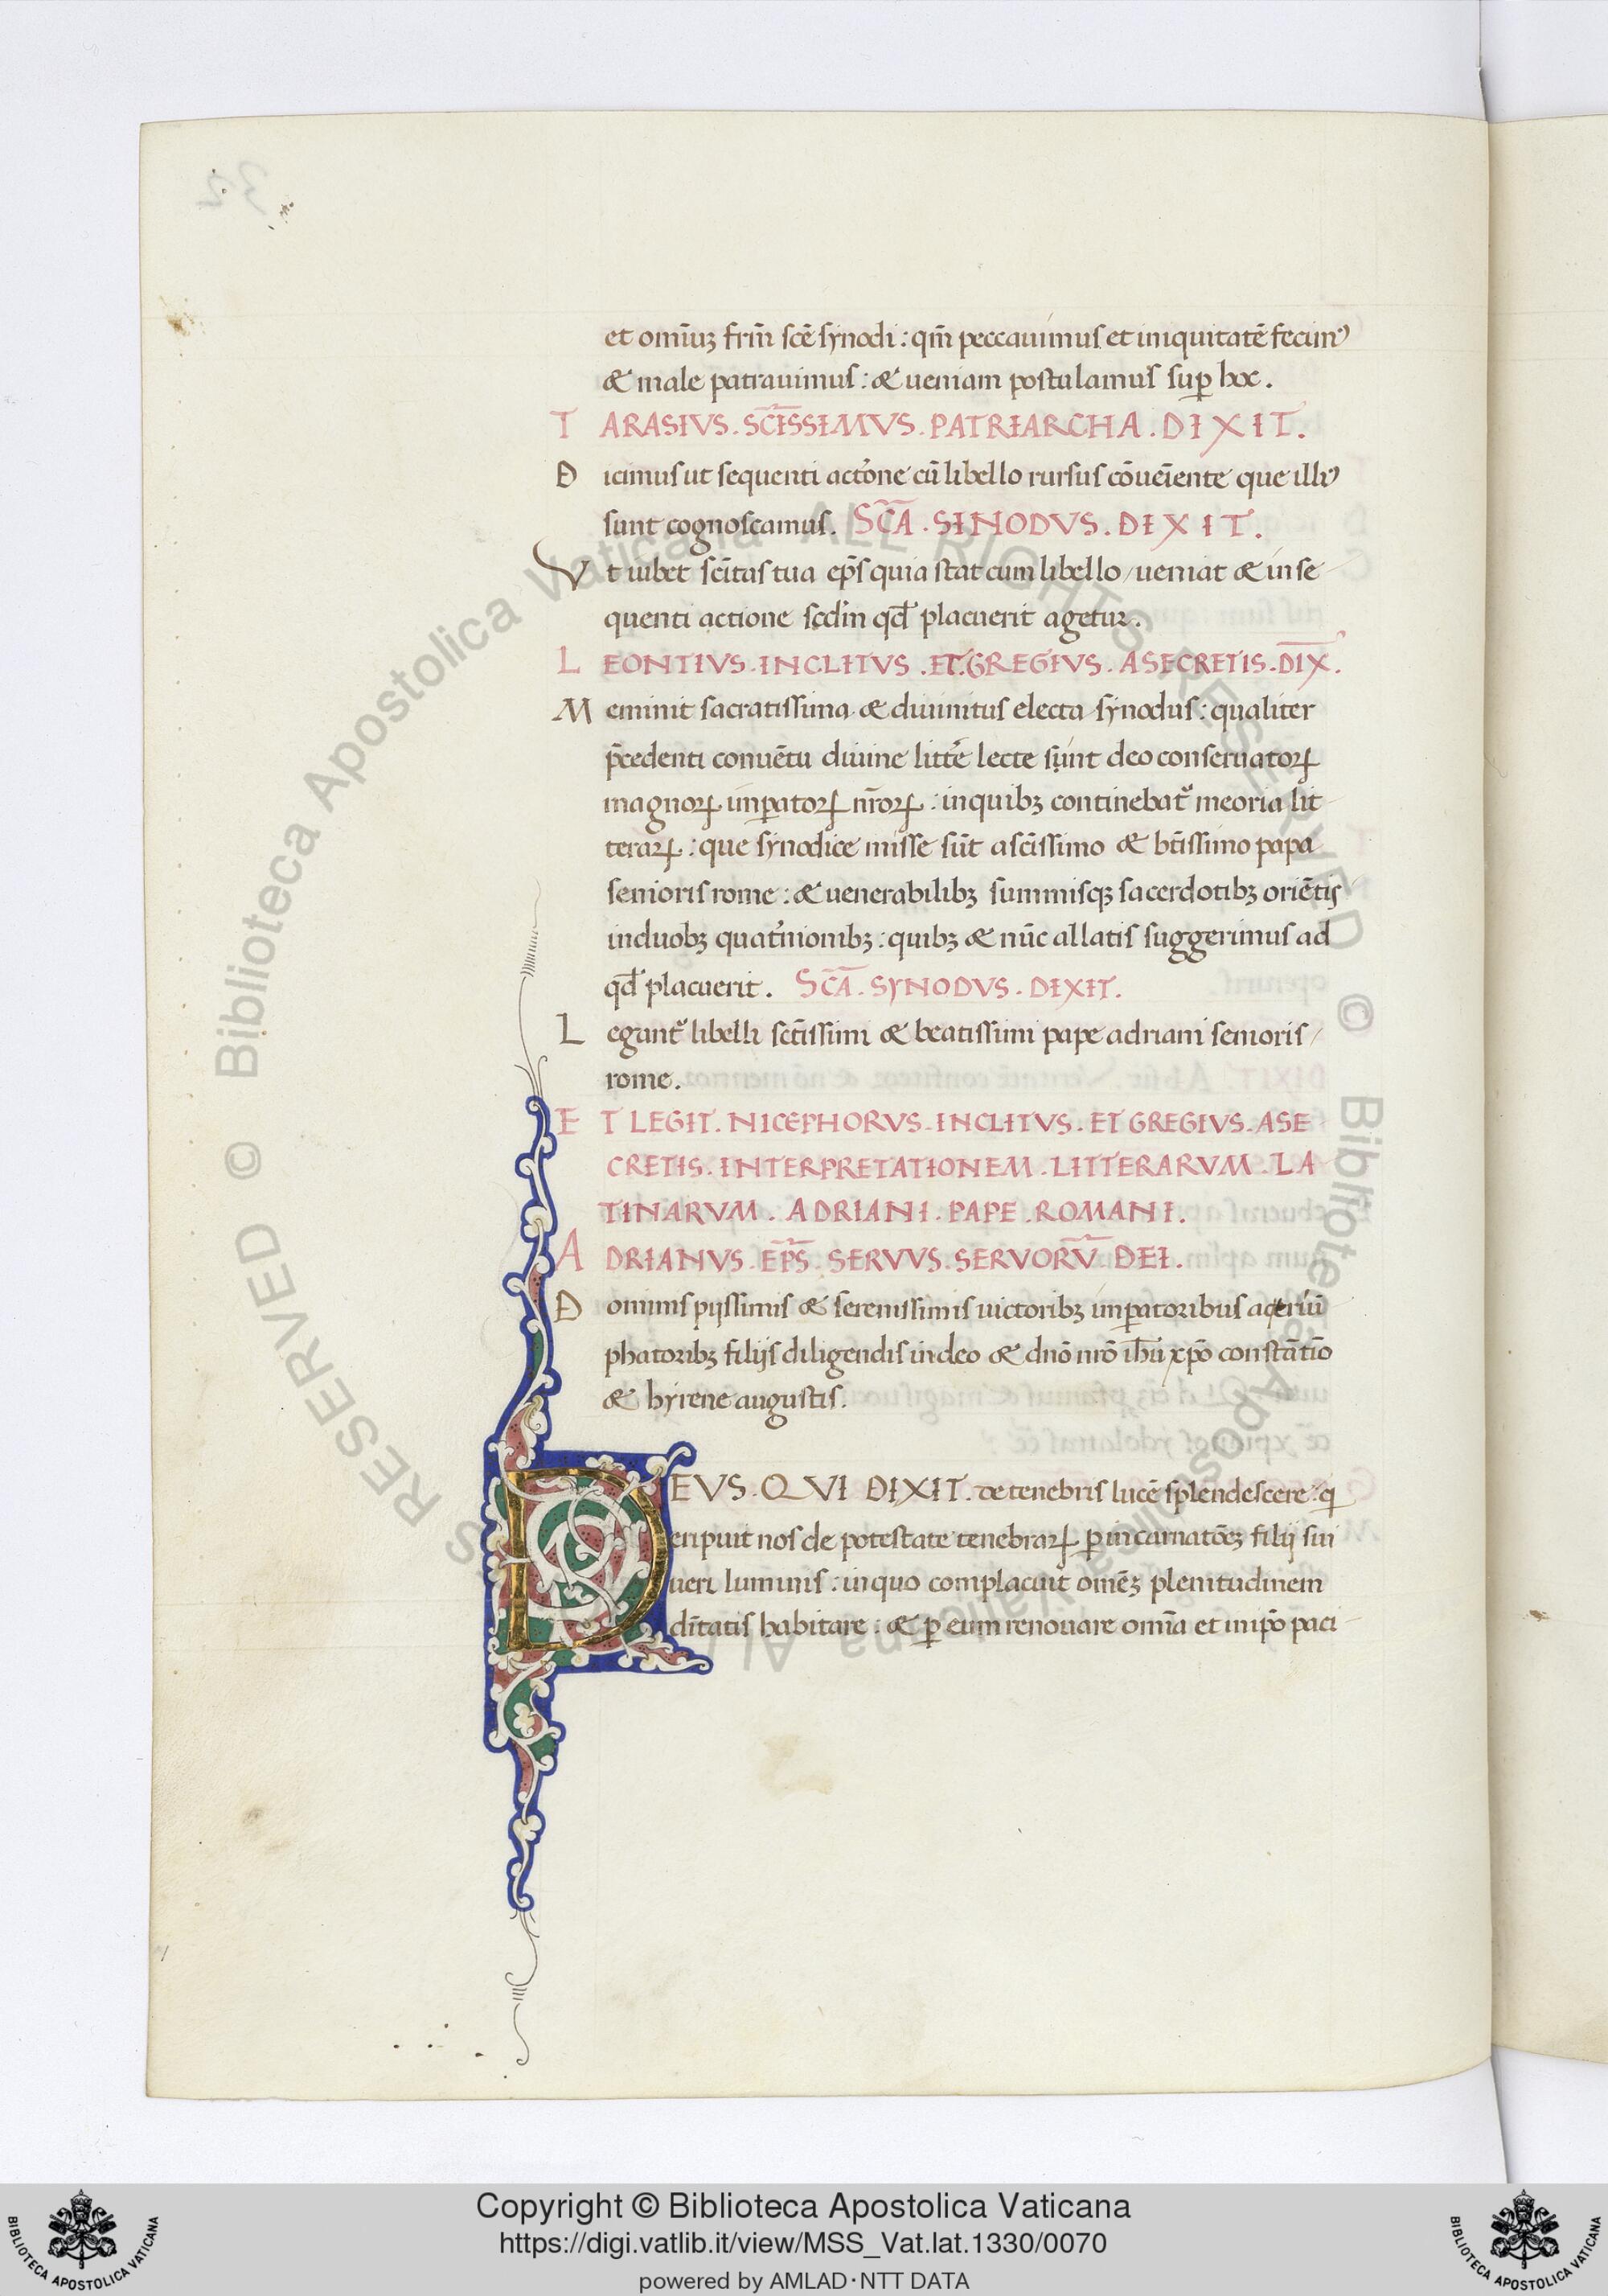 et omĩuȝ frm̃ scẽ synodi : qm̃ peccauimus et iniquitatẽ fecimꝰ
& male patrauimus : & ueniam postulamus suꝑ hoc .
TARASIVS . SC̃ISSIMVS . PATRIARCHA . DIXIT .
Dicimus ut sequenti actiõne cũ libello rursus cõueĩente que illiꝰ
sunt cognoscamus . SC̃A . SINODVS . DIXIT .
Vt iubet sc̃itas tua ep̃s quia stat cum libello / ueniat & in se-
quenti actione scdm̃ qđ placuerit agetur .
LEONTIVS . INCLITVS . ET . GREGIVS . ASECRETIS . DIX̃ .
Meminit sacratissima & diuinitus electa synodus : qualiter
p̃cedenti conuẽtu diuine littẽre lecte sunt deo conseruatoꝝ
magnoꝝ imꝑatoꝝ nr̃oꝝ : in quibȝ continebat᷑ meoria lit-
teraꝝ : que synodice misse sũt a sc̃issimo & bt̃issimo papa
senioris rome : & uenerabilibȝ summisqȝ sacerdotibȝ oriẽtis
in duobȝ quat̃nionibȝ : quibȝ & nũc allatis suggerimus ad
qđ placuerit . SC̃A . SYNODVS . DIXIT .
Legant᷑ libelli sct̃issimi & beatissimi pape adriani senioris /
rome .
ET LEGIT . NICEPHORVS . INCLITVS . ET GREGIVS . ASE
CRETIS . INTERPRETATIONEM . LITTERARVM . LA-
TINARVM . ADRIANI . PAPE . ROMANI .
ADRIANVS . EP̃S . SERVVS . SERVORṼ DEI .
Dominis pijssimis & serenissimis uictoribȝ imꝑatoribus ac triũ
phatoribȝ filijs diligendis in deo & dnõ nrõ ih̃u xp̃o constãtĩo
& hyrene augustis .
DEVS . QVI DIXIT . de tenebris lucẽ splendescere : q
eripuit nos de potestate tenebraꝝ ꝑ incarnatõeȝ filij sui
ueri luminis : in quo complacuit omẽȝ plenitudinem
dĩtatis habitare : & ꝑ eum renouare omĩa et in ip̃o paci-
Copyright © Biblioteca Apostolica Vaticana
https://digi.vatlib.it/view/MSS_Vat.lat.1330/0070
powered by AMLAD·NTT DATA
BIBLIOTECA APOSTOLICA VATICANA
BIBLIOTECA APOSTOLICA VATICANA
© Biblioteca Apostolica Vaticana ALL RIGHTS RESERVED © Biblioteca Apostolica Vaticana ALL RIGHTS RESERVED